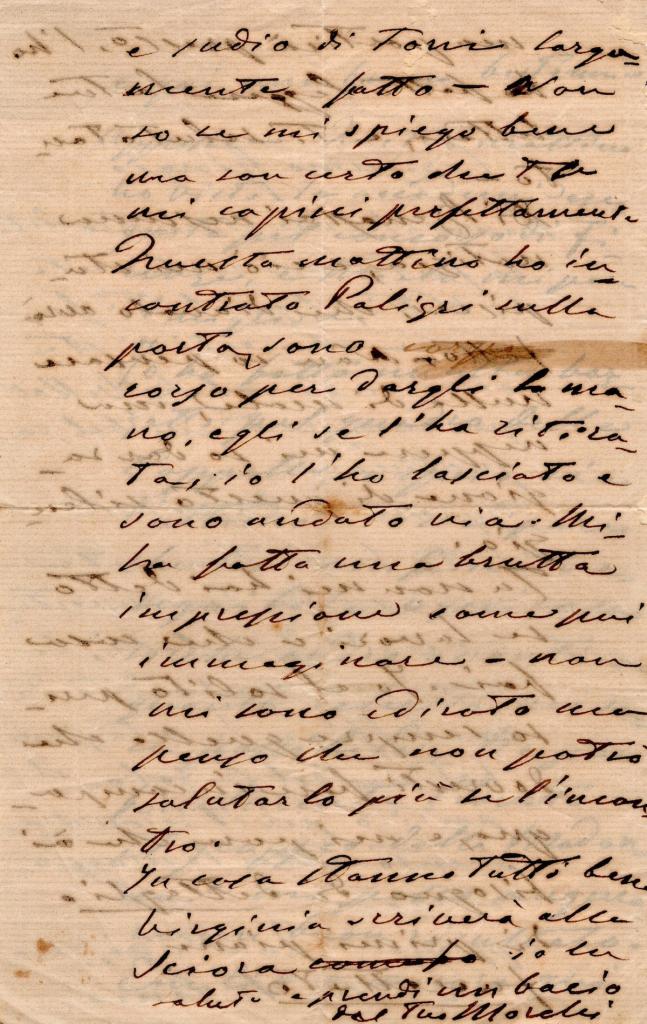 e studio di toni larga-
mente fatto - Non
so se mi spiego bene
ma son certo che tu
mi capisci perfettamente
Questa mattina ho in-
contrato Paligri sulla
porta, sono
corso per dargli la ma-
no, egli se l'ha ritira-
ta, io l'ho lasciato e
sono andato via. Mi
ha fatta una brutta
impressione come puoi
immaginare - non
mi sono adirato ma
penso che non potrò
salutarlo più se l'incon-
tro.
In casa stanno tutti bene
Virginia scriverà alla
Sciora io la
saluto e prendi un bacio
dal tuo